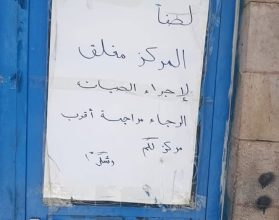 لطفاً
المركز مغلق
لإجراء الصيانة
الرجاء مراجعة أقرب
مركز لكم
وشكراً